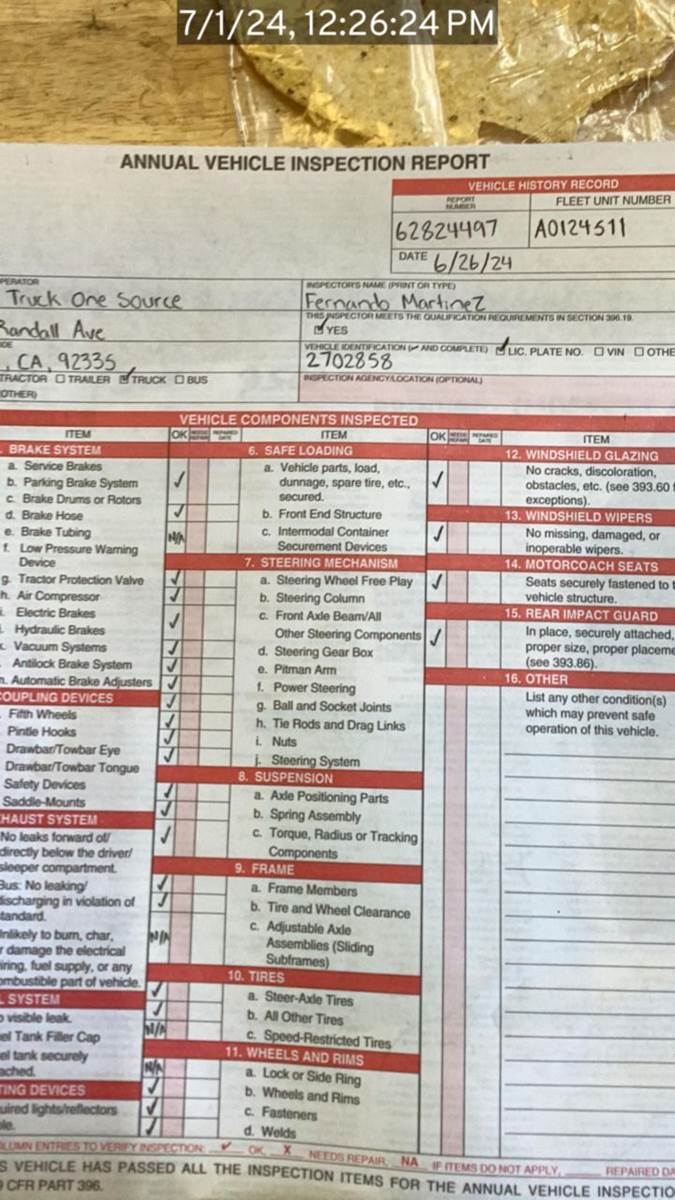 7/1/24, 12:26:24 PM
ANNUAL VEHICLE INSPECTION REPORT
VEHICLE HISTORY RECORD
REPORT NUMBER
FLEET UNIT NUMBER
62824497
A0124511
DATE 6/26/24
PERATOR
Truck One Source
INSPECTOR'S NAME (PRINT OR TYPE)
Fernando Martinez
THIS INSPECTOR MEETS THE QUALIFICATION REQUIREMENTS IN SECTION 396.19.
YES
Randall Ave
, CA, 92335
VEHICLE IDENTIFICATION (✓ AND COMPLETE) ✓ LIC. PLATE NO. ☐ VIN ☐ OTHE
2702858
TRACTOR ☐ TRAILER ✓ TRUCK ☐ BUS
OTHER)
INSPECTION AGENCY/LOCATION (OPTIONAL)
VEHICLE COMPONENTS INSPECTED
ITEM
OK
NEEDS REPAIR
REPAIRED DATE
BRAKE SYSTEM
a. Service Brakes
b. Parking Brake System ✓
c. Brake Drums or Rotors
d. Brake Hose ✓
e. Brake Tubing N/A
f. Low Pressure Warning
Device
g. Tractor Protection Valve ✓
h. Air Compressor ✓
i. Electric Brakes ✓
Hydraulic Brakes
Vacuum Systems ✓
Antilock Brake System ✓
Automatic Brake Adjusters ✓
COUPLING DEVICES
Fifth Wheels ✓
Pintle Hooks ✓
Drawbar/Towbar Eye ✓
Drawbar/Towbar Tongue
Safety Devices ✓
Saddle-Mounts ✓
HAUST SYSTEM
No leaks forward of/ ✓
directly below the driver/
sleeper compartment.
Bus: No leaking/ ✓
discharging in violation of ✓
standard.
Unlikely to burn, char, N/A
r damage the electrical
iring, fuel supply, or any
ombustible part of vehicle. ✓
L SYSTEM
o visible leak. ✓
el Tank Filler Cap N/A
el tank securely
ached. N/A
TING DEVICES ✓
uired lights/reflectors ✓
le. ✓
ITEM
OK
NEEDS REPAIR
REPAIRED DATE
6. SAFE LOADING
a. Vehicle parts, load, ✓
dunnage, spare tire, etc.,
secured.
b. Front End Structure
c. Intermodal Container ✓
Securement Devices
7. STEERING MECHANISM
a. Steering Wheel Free Play ✓
b. Steering Column
c. Front Axle Beam/All
Other Steering Components ✓
d. Steering Gear Box
e. Pitman Arm
f. Power Steering
g. Ball and Socket Joints
h. Tie Rods and Drag Links
i. Nuts
j. Steering System
8. SUSPENSION
a. Axle Positioning Parts
b. Spring Assembly
c. Torque, Radius or Tracking
Components
9. FRAME
a. Frame Members
b. Tire and Wheel Clearance
c. Adjustable Axle
Assemblies (Sliding
Subframes)
10. TIRES
a. Steer-Axle Tires
b. All Other Tires
c. Speed-Restricted Tires
11. WHEELS AND RIMS
a. Lock or Side Ring
b. Wheels and Rims
c. Fasteners
d. Welds
ITEM
12. WINDSHIELD GLAZING
No cracks, discoloration,
obstacles, etc. (see 393.60 f
exceptions).
13. WINDSHIELD WIPERS
No missing, damaged, or
inoperable wipers.
14. MOTORCOACH SEATS
Seats securely fastened to t
vehicle structure.
15. REAR IMPACT GUARD
In place, securely attached,
proper size, proper placeme
(see 393.86).
16. OTHER
List any other condition(s)
which may prevent safe
operation of this vehicle.
OLUMN ENTRIES TO VERIFY INSPECTION: ✓ OK, X NEEDS REPAIR, NA IF ITEMS DO NOT APPLY, REPAIRED DA
S VEHICLE HAS PASSED ALL THE INSPECTION ITEMS FOR THE ANNUAL VEHICLE INSPECTIO
9 CFR PART 396.